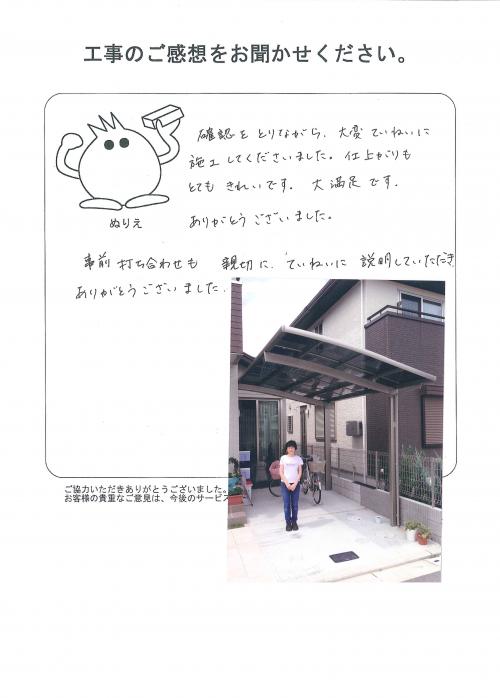 工事のご感想をお聞かせください。
確認をとりながら、大変ていねいに
施工してくださいました。仕上がりも
とてもきれいです。大満足です。
ありがとうございました。
ぬりえ
事前打ち合わせも 親切に、ていねいに 説明していただき
ありがとうございました。
ご協力いただきありがとうございました。
お客様の貴重なご意見は、今後のサービス